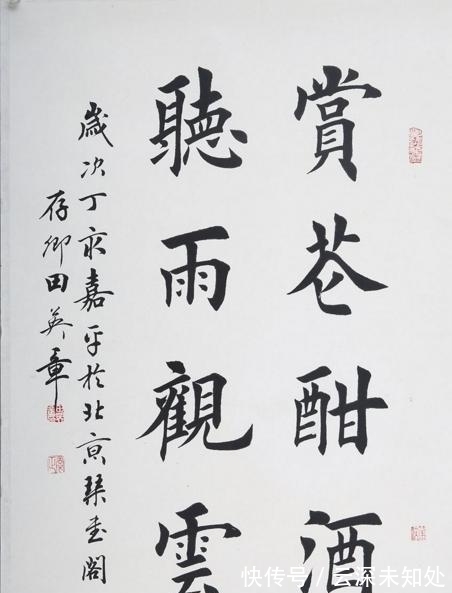 賞花酣酒
聽雨觀雲
歲次丁亥嘉平於北京琹书阁
存卿田英章
快传号/云深未知处